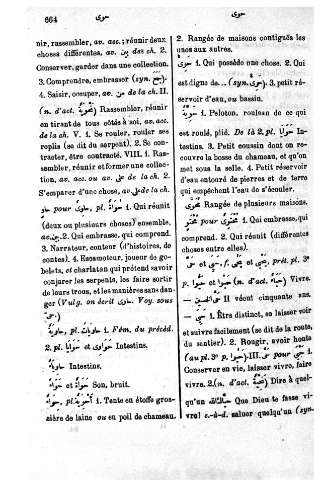 664
حوى
حوى
nir, rassembler, av. acc.; réunir deux
choses différentes, av. بين des ch. 2.
Conserver, garder dans une collection.
3. Comprendre, embrasser (syn. جمع).
4. Saisir, occuper, av. على de la ch. II.
(n. d'act. تحوية) Rassembler, réunir
en tirant de tous côtés à soi, av. acc.
de la ch. V. 1. Se rouler, rouler ses
replis (se dit du serpent). 2. Se con-
tracter, être contracté. VIII. 1. Ras-
sembler, réunir et former une collec-
tion, av. acc. ou av. على de la ch. 2.
S'emparer d'une chose, av. على de la ch.
حاو pour حاوى, pl. حواة 1. Qui réunit
(deux ou plusieurs choses) ensemble,
av. بين. 2. Qui embrasse, qui comprend.
3. Narrateur, conteur (d'histoires, de
contes). 4. Escamoteur, joueur de go-
belets, et charlatan qui prétend savoir
conjurer les serpents, les faire sortir
de leurs trous, et les manières sans dan-
ger (Vulg. on écrit حاوى. Voy. sous
حاوية, pl. حاويات 1. Fém. du précéd.
2. pl. حوايا et حاوى Intestins.
Intestins.
حواة et Son, bruit.
حواء, pl. أحوية 1. Tente en étoffe gros-
sière de laine ou en poil de chameau.
2. Rangée de maisons contiguës les
unes aux autres.
1. Qui possède une chose. 2. Qui
est digne de... (syn. ). 3. petit ré-
servoir d'eau, ou bassin.
حوية 1. Peloton, rouleau de ce qui
est roulé, plié. De là 2. pl. حوايا In-
testins. 3. Petit coussin dont on re-
couvre la bosse du chameau, et qu'on
met sous la selle. 4. Petit réservoir
d'eau entouré de pierres et de terre
qui empêchent l'eau de s'écouler.
Rangée de plusieurs maisons.
pour 1. Qui embrasse, qui
comprend. 2. Qui réunit (différentes
choses entre elles).
حى et حيى, f. , prét. pl. 3e
p. et (n. d'act. حياة) Vivre.
— II vécut cinquante ans.
— 1. Être distinct, se laisser voir
et suivre facilement (se dit de la route,
du sentier). 2. Rougir, avoir honte
(au pl. 3e p. ). III. pour 1.
Conserver en vie, laisser vivre, faire
vivre. 2. (n. d'act. تحية) Dire à quel-
qu'un حياك الله Que Dieu te fasse vi-
vre! c.-à-d. saluer quelqu'un (syn.